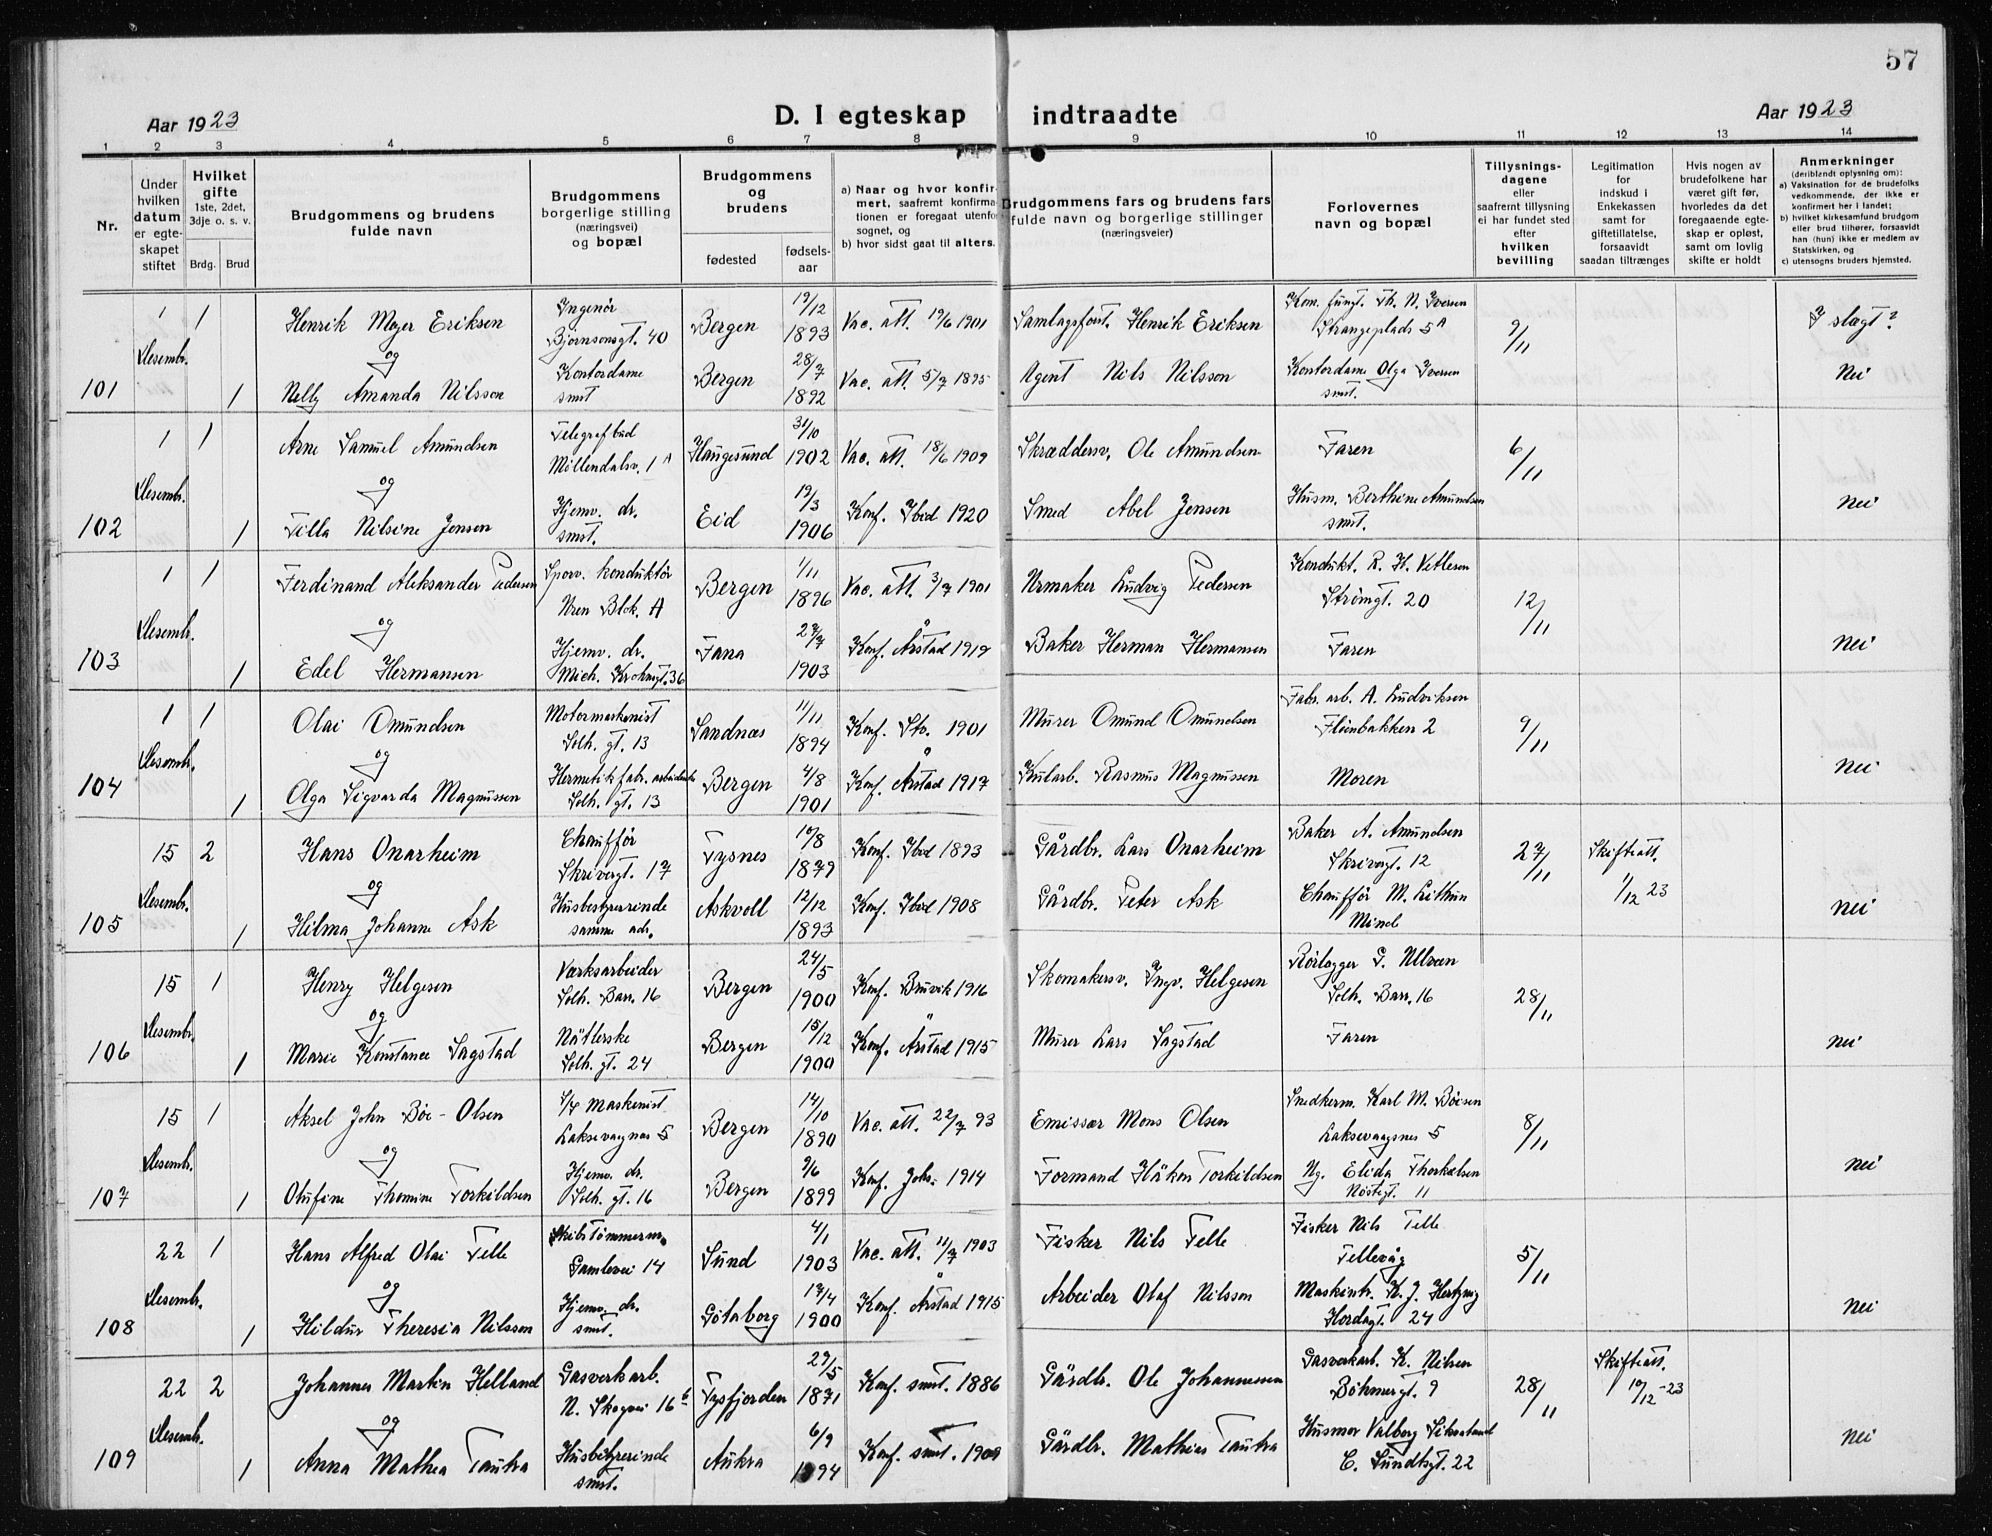 57
Aar 1923
D. I egteskap indtraadte
Aar 1923
1 2 3 4 5 6 7 8 9 10 11 12 13 14
Nr.
Under hvilken datum er egteskapet stiftet
Hvilket gifte 1ste, 2det, 3dje o. s. v.
Brdg. Brud
Brudgommens og brudens fulde navn
Brudgommens borgerlige stilling (næringsvei) og bopæl
Brudgommens og brudens
fødested fødsels-aar
a) Naar og hvor konfirmert, saafremt konfirmationen er foregaat utenfor sognet, og
b) hvor sidst gaat til alters.
Brudgommens fars og brudens fars fulde navn og borgerlige stillinger (næringsveier)
Forlovernes navn og bopæl
Tillysningsdagene eller saafremt tillysning ei har fundet sted efter hvilken bevilling
Legitimation for indskud i Enkekassen samt for giftetillatelse, forsaavidt saadan tiltrænges
Hvis nogen av brudefolkene har været gift før, hvorledes da det foregaaende egteskap er opløst, samt om lovlig skifte er holdt
Anmerkninger (deriblandt oplysning om):
a) Vaksination for de brudefolks vedkommende, der ikke er konfirmert her i landet;
b) hvilket kirkesamfund brudgom eller brud tilhører, forsaavidt han (hun) ikke er medlem av Statskirken, og
c) utensogns bruders hjemsted.
1 1 Henrik Meyer Eriksen Ingeniør Bjørnsonsgt. 40 Bergen 19/12 1893 Vac. att. 19/6 1901 Samlagsforst. Henrik Eriksen Kom. fungt. Th. N. Iversen Strangeplads 5A 9/11 I slægt?
101 Desembr. 1 og Nelly Amanda Nilsson Kontordame smst Bergen 28/7 1892 Vac. att. 5/7 1895 Agent Nils Nilsson Kontordame Olga Iversen smst. Nei
1 1 Arne Samuel Amundsen Telegrafbud Møllendalsv. 1A Haugesund 31/10 1902 Vac. att. 18/6 1909 Skræddersv. Ole Amundsen Faren 6/11
102 Desembr. 1 og Tilla Nilsine Jensen Hjemv. dr. smst. Eid 19/3 1906 Konf. Ibid 1920 Smed Abel Jensen Husm. Berthine Amundsen smst. Nei
1 1 Ferdinand Aleksander Pedersen Sporv. konduktør Nren Blok. A Bergen 1/11 1896 Vac. att. 3/7 1901 Urmaker Ludvig Pedersen Kondukt. R. H. Vetlesen Strømgt. 20 12/11
103 Desembr. 1 og Edel Hermansen Hjemv. dr. Mich. Krohnsgt. 36 Fana 27/7 1903 Konf. Årstad 1919 Baker Herman Hermansen Faren Nei
1 1 Olai Omundsen Motormaskinist Solh. gt. 13 Sandnæs 11/11 1894 Konf. Stv. 1901 Murer Omund Omundsen Fabr. arb. A. Ludviksen Fløienbakken 2 9/11
104 Desembr. 1 og Olga Sigvarda Magnussen Hermetikfabr. arbeiderske Solh. gt. 13 Bergen 4/8 1901 Konf. Årstad 1917 Kularb. Rasmus Magnussen Moren Nei
15 2 Hans Onarheim Chauffør Skrivergt. 17 Tysnes 10/8 1879 Konf. Ibid 1893 Gårdbr. Lars Onarheim Baker A. Amundsen Skrivergt. 12 27/11 Skifteatt. 1/12 23
105 Desembr. 1 og Hilma Johanne Ask Husbestyrerinde samme adr. Askvoll 12/12 1893 Konf. Ibid 1908 Gårdbr. Peter Ask Chauffør M. Lithun Minde Nei
15 1 Henry Helgesen Værksarbeider Solh. Barr. 16 Bergen 24/5 1900 Konf. Bruvik 1916 Skomakersv. Ingv. Helgesen Rørlægger G. Ulveen Solh. Barr. 16 28/11
106 Desembr. 1 og Marie Konstance Sagstad Nåtlerske Solh. gt. 24 Bergen 15/12 1900 Konf. Årstad 1915 Murer Lars Sagstad Faren Nei
15 1 Aksel John Bøe-Olsen Maskinist Laksevaagnes 5 Bergen 14/10 1890 Vac. att. 22/7 93 Emissær Mons Olsen Snedkerm. Karl M. Bøesen Laksevaagsnes 5 8/11
107 Desembr. 1 og Olufine Thomine Torkildsen Hjemv. dr. Solh. gt. 16 Bergen 9/6 1899 Konf. Joh. 1914 Formand Håkon Torkildsen Ng. Elida Thorkelsen Nøstegt. 11 Nei
22 1 Hans Alfred Olai Telle Skibstømmerm. Gamlevei 14 Sund 4/1 1903 Vac. att. 11/7 1903 Fisker Nils Telle Fisker Nils Telle Tellevåg 5/11
108 Desembr. 1 og Hildur Theresia Nilsson Hjemv. dr. smst. Götaborg 17/4 1900 Konf. Årstad 1915 Arbeider Olaf Nilsson Maskintr. K. J. Hertzvig Hordagt. 24 Nei
22 2 Johannes Martin Helland Gasverkarb. N. Skogvei 16b Tysfjorden 29/5 1871 Konf. smst. 1886 Gårdbr. Ole Johannesen Gasverkarb. K. Nilsen Bøhmergt. 9 28/11 Skifteatt. 10/12-23
109 Desembr. 1 og Anna Mathea Tautra Husbestyrerinde smst. Aukra 6/9 1894 Konf. smst. 1909 Gårdbr. Mathias Tautra Husmor Valborg C. Sundtsgt. 22 Nei